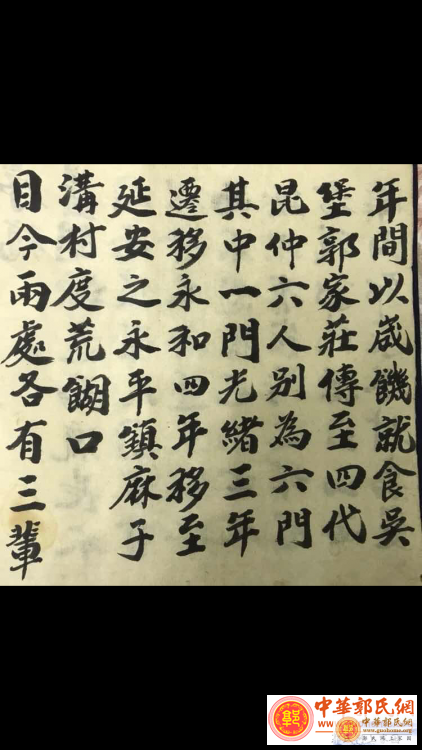 年間以歲饑就食吳
堡郭家莊傳至四代
昆仲六人别為六門
其中一門光緒三年
遷移永和四年移至
延安之永平鎮麻子
溝村度荒餬口
目今兩處各有三輩
中華郭氏網
中華郭氏網
www.guohome.org